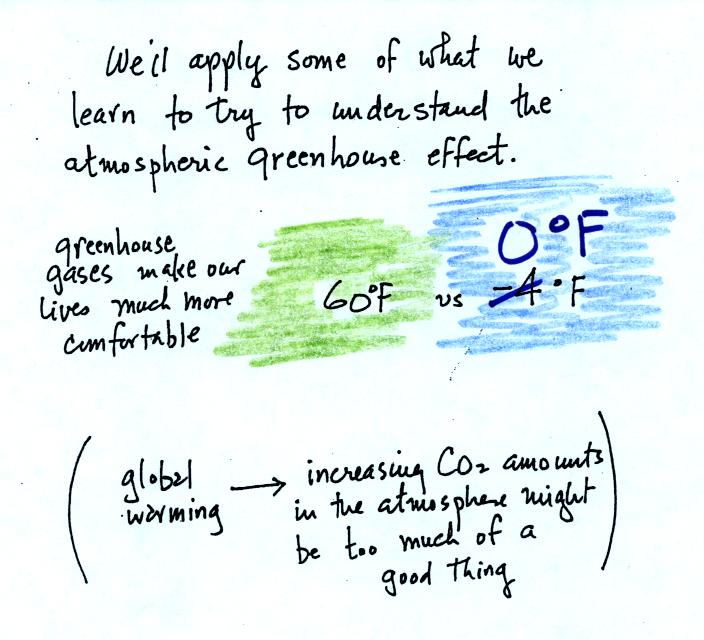 We'll apply some of what we
learn to try to understand the
atmospheric greenhouse effect.
greenhouse
gases make our
lives much more
comfortable
60°F vs
0°F
-4°F
global
warming → increasing CO₂ amounts
in the atmosphere might
be too much of a
good thing